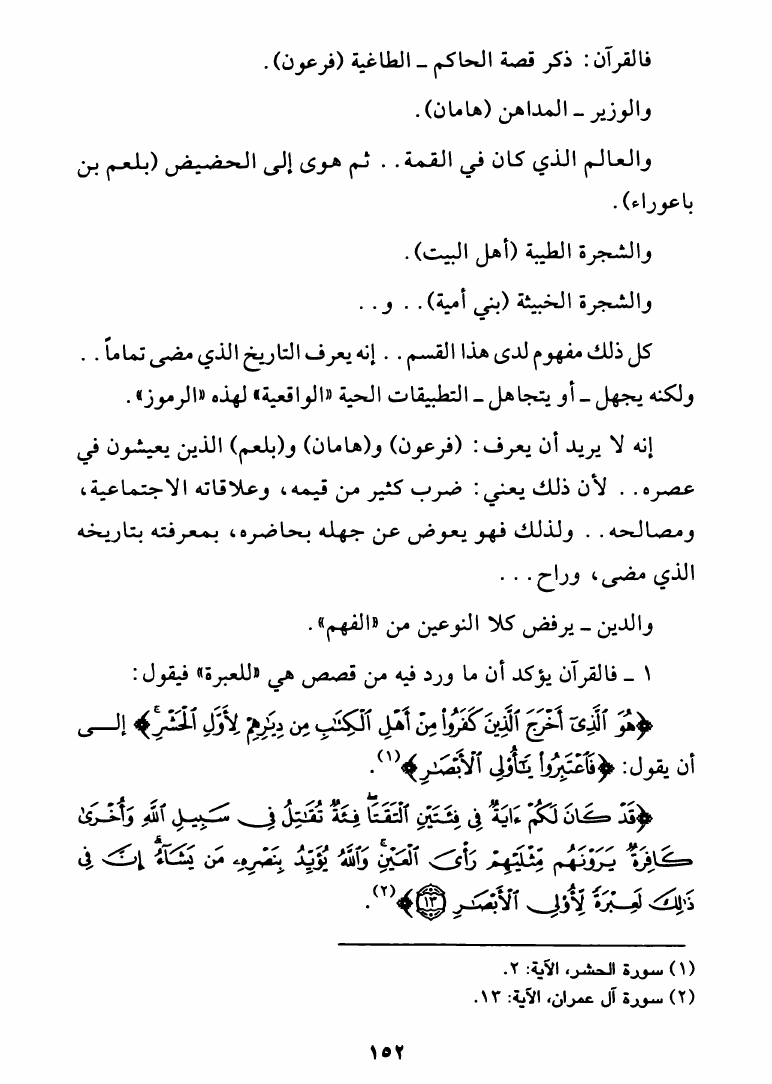 فالقرآن: ذكر قصة الحاكم ـ الطاغية (فرعون).
والوزير ـ المداهن (هامان).
والعالم الذي كان في القمة. . ثم هوى إلى الحضيض (بلعم بن
باعوراء).
والشجرة الطيبة (أهل البيت).
والشجرة الخبيثة (بني أمية). . و. .
كل ذلك مفهوم لدى هذا القسم. . إنه يعرف التاريخ الذي مضى تماماً. .
ولكنه يجهل ـ أو يتجاهل ـ التطبيقات الحية «الواقعية» لهذه «الرموز».
إنه لا يريد أن يعرف: (فرعون) و(هامان) و(بلعم) الذين يعيشون في
عصره. . لأن ذلك يعني: ضرب كثير من قيمه، وعلاقاته الاجتماعية،
ومصالحه. . ولذلك فهو يعوض عن جهله بحاضره، بمعرفته بتاريخه
الذي مضى، وراح. . .
والدين ـ يرفض كلا النوعين من «الفهم».
١ ـ فالقرآن يؤكد أن ما ورد فيه من قصص هي «للعبرة» فيقول:
﴿هُوَ ٱلَّذِىٓ أَخْرَجَ ٱلَّذِينَ كَفَرُوا۟ مِنْ أَهْلِ ٱلْكِتَٰبِ مِن دِيَٰرِهِمْ لِأَوَّلِ ٱلْحَشْرِ ۚ﴾ إلى
أن يقول: ﴿فَٱعْتَبِرُوا۟ يَٰٓأُو۟لِى ٱلْأَبْصَٰرِ﴾(١).
﴿قَدْ كَانَ لَكُمْ ءَايَةٌ فِى فِئَتَيْنِ ٱلْتَقَتَا ۖ فِئَةٌ تُقَٰتِلُ فِى سَبِيلِ ٱللَّهِ وَأُخْرَىٰ
كَافِرَةٌ يَرَوْنَهُم مِّثْلَيْهِمْ رَأْىَ ٱلْعَيْنِ ۚ وَٱللَّهُ يُؤَيِّدُ بِنَصْرِهِۦ مَن يَشَآءُ ۗ إِنَّ فِى
ذَٰلِكَ لَعِبْرَةً لِّأُو۟لِى ٱلْأَبْصَٰرِ ١٣﴾(٢).
(١) سورة الحشر، الآية: ٢.
(٢) سورة آل عمران، الآية: ١٣.
١٥٢